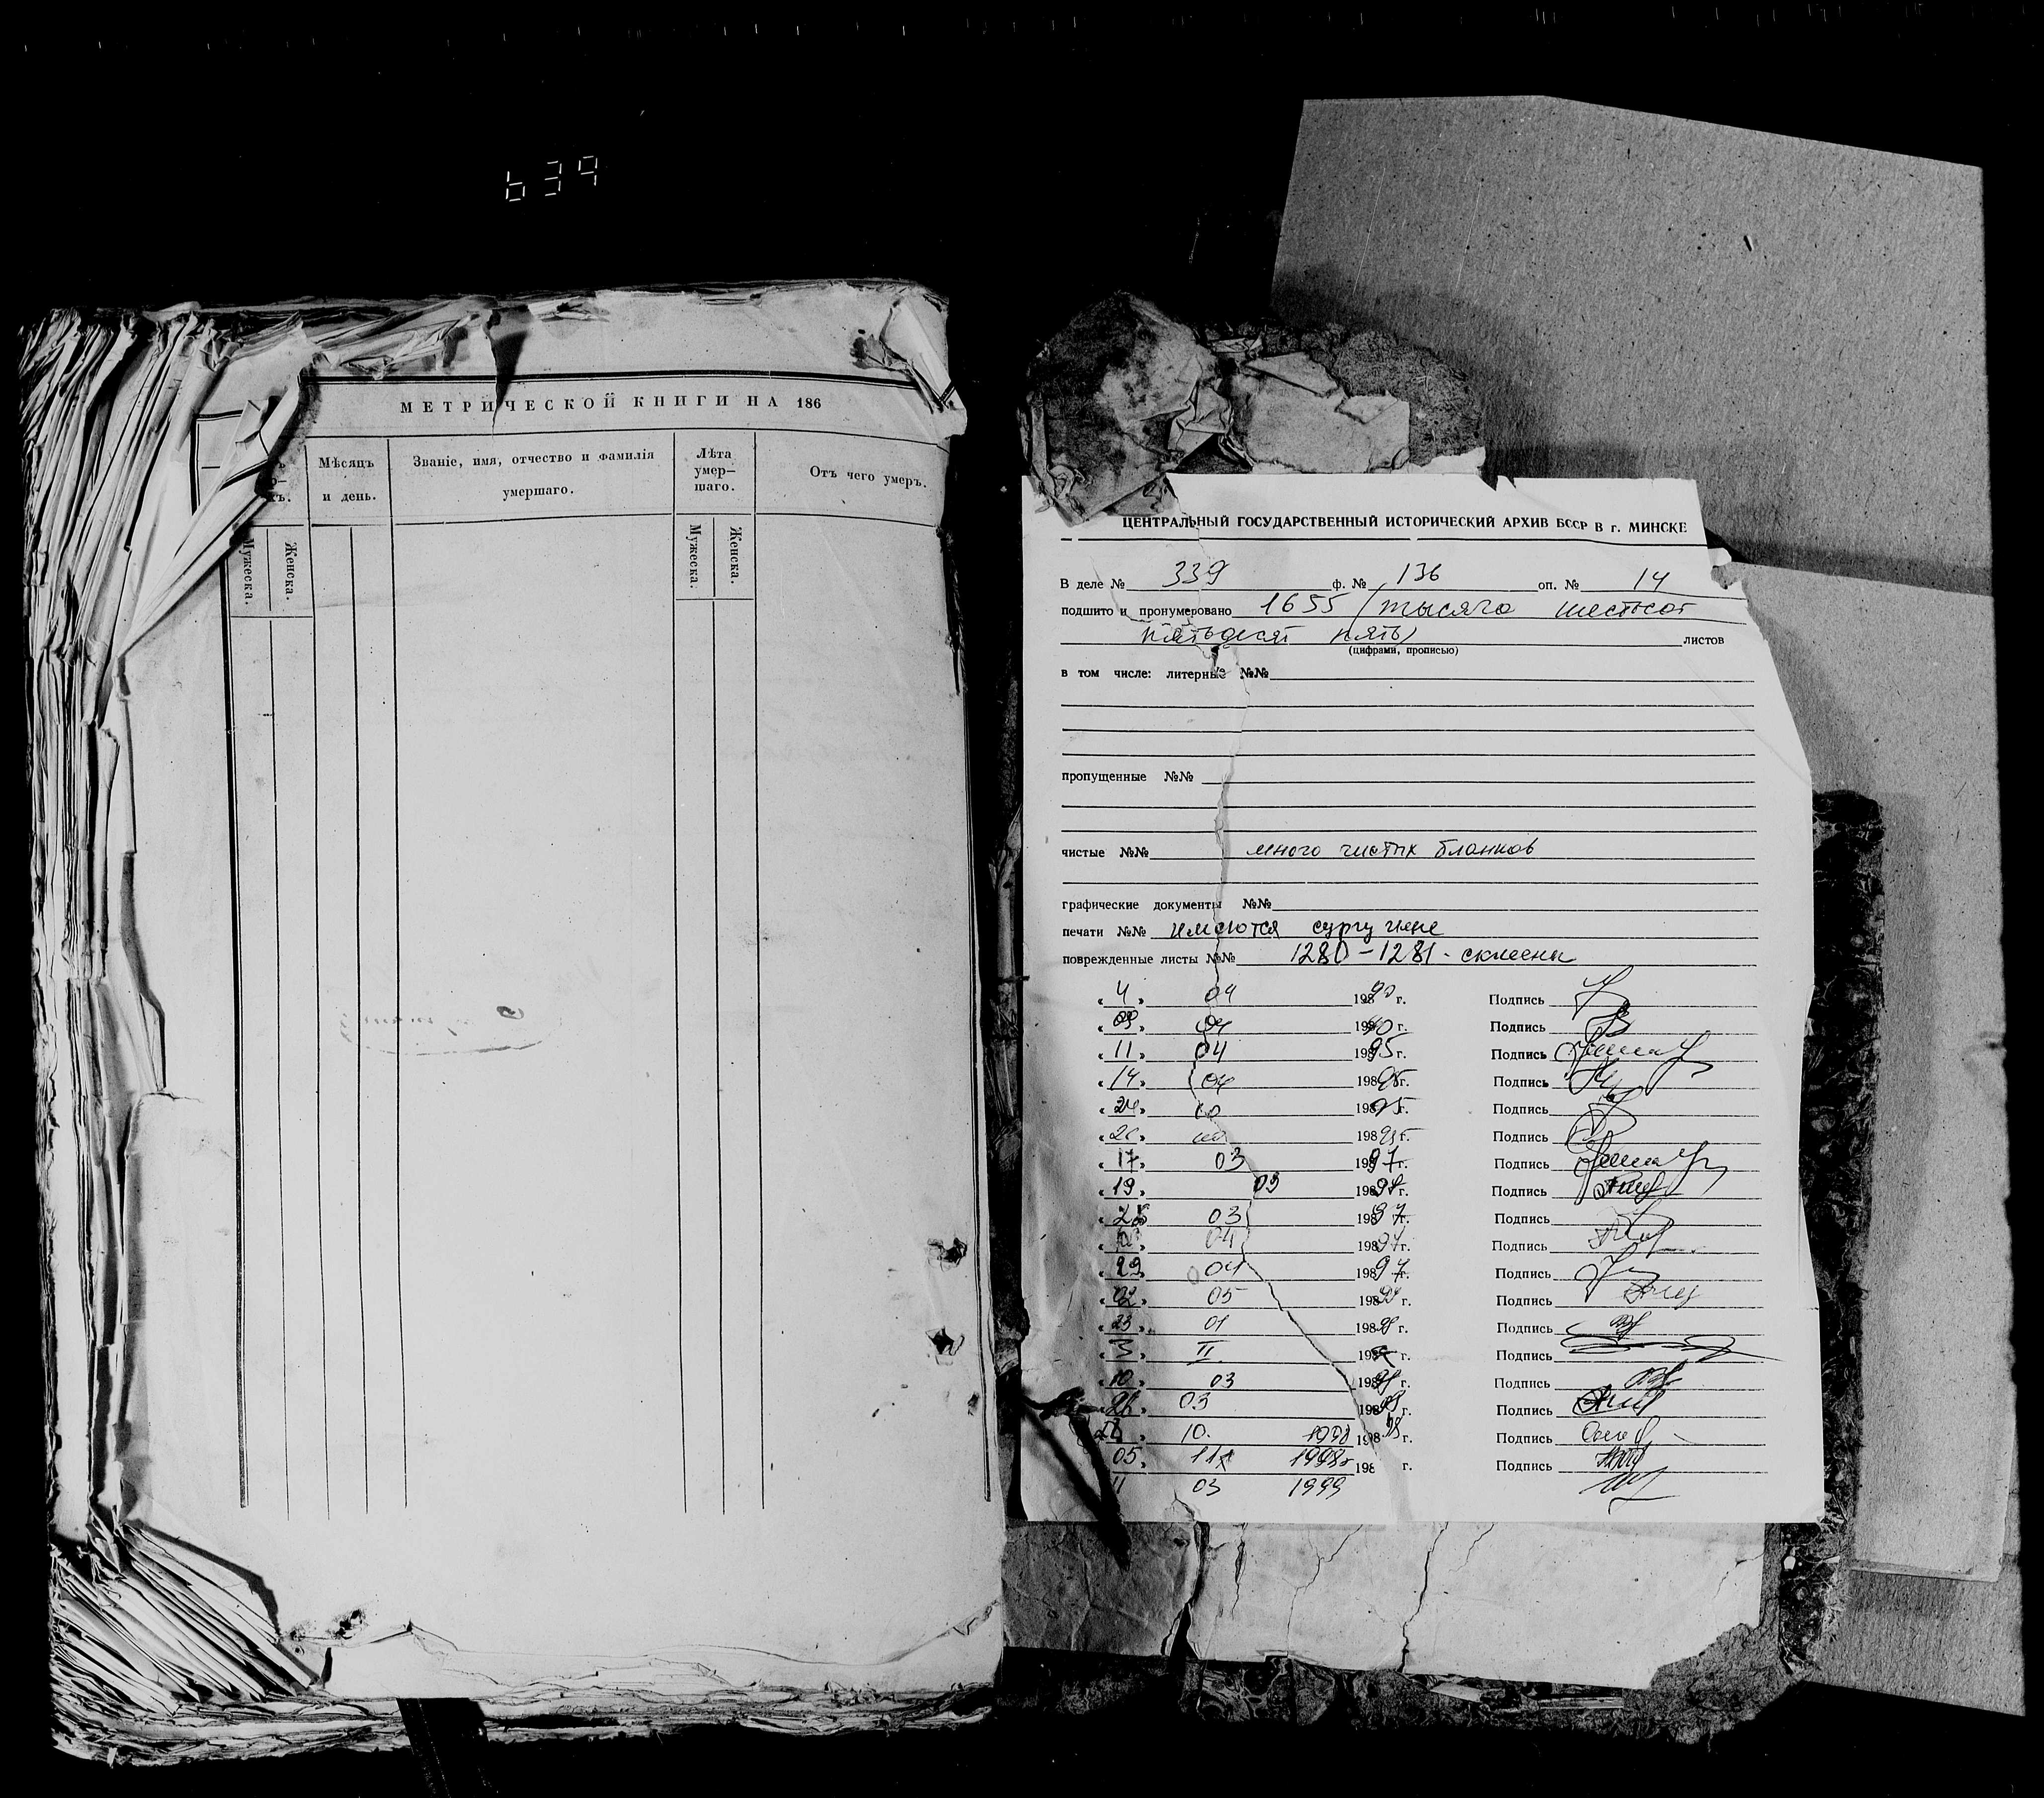 639
МЕТРИЧЕСКОЙ КНИГИ НА 186
Мѣсяцъ и день.
Званіе, имя, отчество и фамилія умершаго.
Лѣта умер-шаго.
Отъ чего умеръ.
Мужеска. Женска. Мужеска. Женска.
ЦЕНТРАЛЬНЫЙ ГОСУДАРСТВЕННЫЙ ИСТОРИЧЕСКИЙ АРХИВ БССР В г. МИНСКЕ
В деле № 339 ф. № 136 оп. № 14
подшито и пронумеровано 1655 (тысяча шестьсот
пятьдесят пять) листов
(цифрами, прописью)
в том числе: литерные №№
пропущенные №№
чистые №№ много чистых бланков
графические документы №№
печати №№ имеются сургучные
поврежденные листы №№ 1280-1281 - склеены
« 4 » 04 19890 г. Подпись
« 09 » 04 1990 г. Подпись
« 11 » 04 19895 г. Подпись
« 14 » 04 19895 г. Подпись
« 24 » 10 19895 г. Подпись
198 95 г. Подпись
« 17 » 03 198 97 г. Подпись
« 19 » 03 198 97 г. Подпись
« 25 03 198 97 г. Подпись
04 198 97 г. Подпись
« 29 » 04 198 97 г. Подпись
« 02 » 05 198 г. Подпись
« 23 » 01 198 98 г. Подпись
« 5 » II г. Подпись
« 10 » 03 198 98 г. Подпись
« 26 » 03 198 98 г. Подпись
10. 1998 198 98 г. Подпись
05 » 11 1998 г 198 г. Подпись
11 03 1999